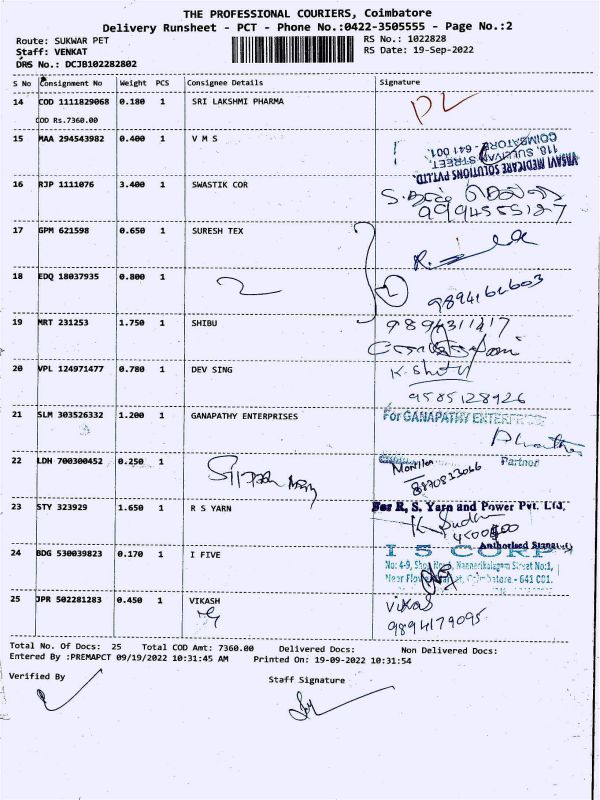 THE PROFESSIONAL COURIERS, Coimbatore
Delivery Runsheet - PCT - Phone No.:0422-3505555 - Page No.:2
Route: SUKWAR PET RS No.: 1022828
Staff: VENKAT RS Date: 19-Sep-2022
DRS No.: DCJB102282802
S No Consignment No Weight PCS Consignee Details Signature
14 COD 1111829068 0.180 1 SRI LAKSHMI PHARMA
COD Rs.7360.00
15 MAA 294543982 0.400 1 V M S
VASAVI MEDICARE SOLUTIONS PVT.LTD.
118, SULLIVAN STREET,
COIMBATORE - 641 001.
16 RJP 1111076 3.400 1 SWASTIK COR
9994555127
17 GPM 621598 0.650 1 SURESH TEX
18 EDQ 18037935 0.800 1
19 MRT 231253 1.750 1 SHIBU 9894311417
20 VPL 124971477 0.780 1 DEV SING
9585128926
21 SLM 303526332 1.200 1 GANAPATHY ENTERPRISES For GANAPATHY ENTERPRISES
Partner
22 LDH 700300452 0.250 1
23 STY 323929 1.650 1 R S YARN For R. S. Yarn and Power Pvt. Ltd,
Authorised Signatory
24 BDG 530039823 0.170 1 I FIVE I 5 CORP
25 JPR 502281283 0.450 1 VIKASH Vikas
9894179095
Total No. Of Docs: 25 Total COD Amt: 7360.00 Delivered Docs: Non Delivered Docs:
Entered By :PREMAPCT 09/19/2022 10:31:45 AM Printed On: 19-09-2022 10:31:54
Verified By Staff Signature